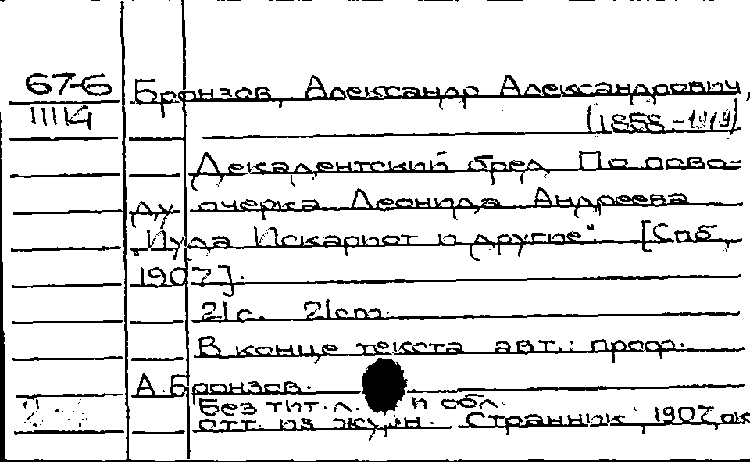 67-6 Бронзов, Александр Александрович,
11114 (1858-1919)
Декадентский бред По пово-
ду очерка Леонида Андреева
„Иуда Искариот и другие“ [Спб,
1907].
21 с. 21 cm.
В конце текста авт.: проф.
А. Бронзов.
Без тит. л. и обл.
отт. из журн. Странник, 1907, ок